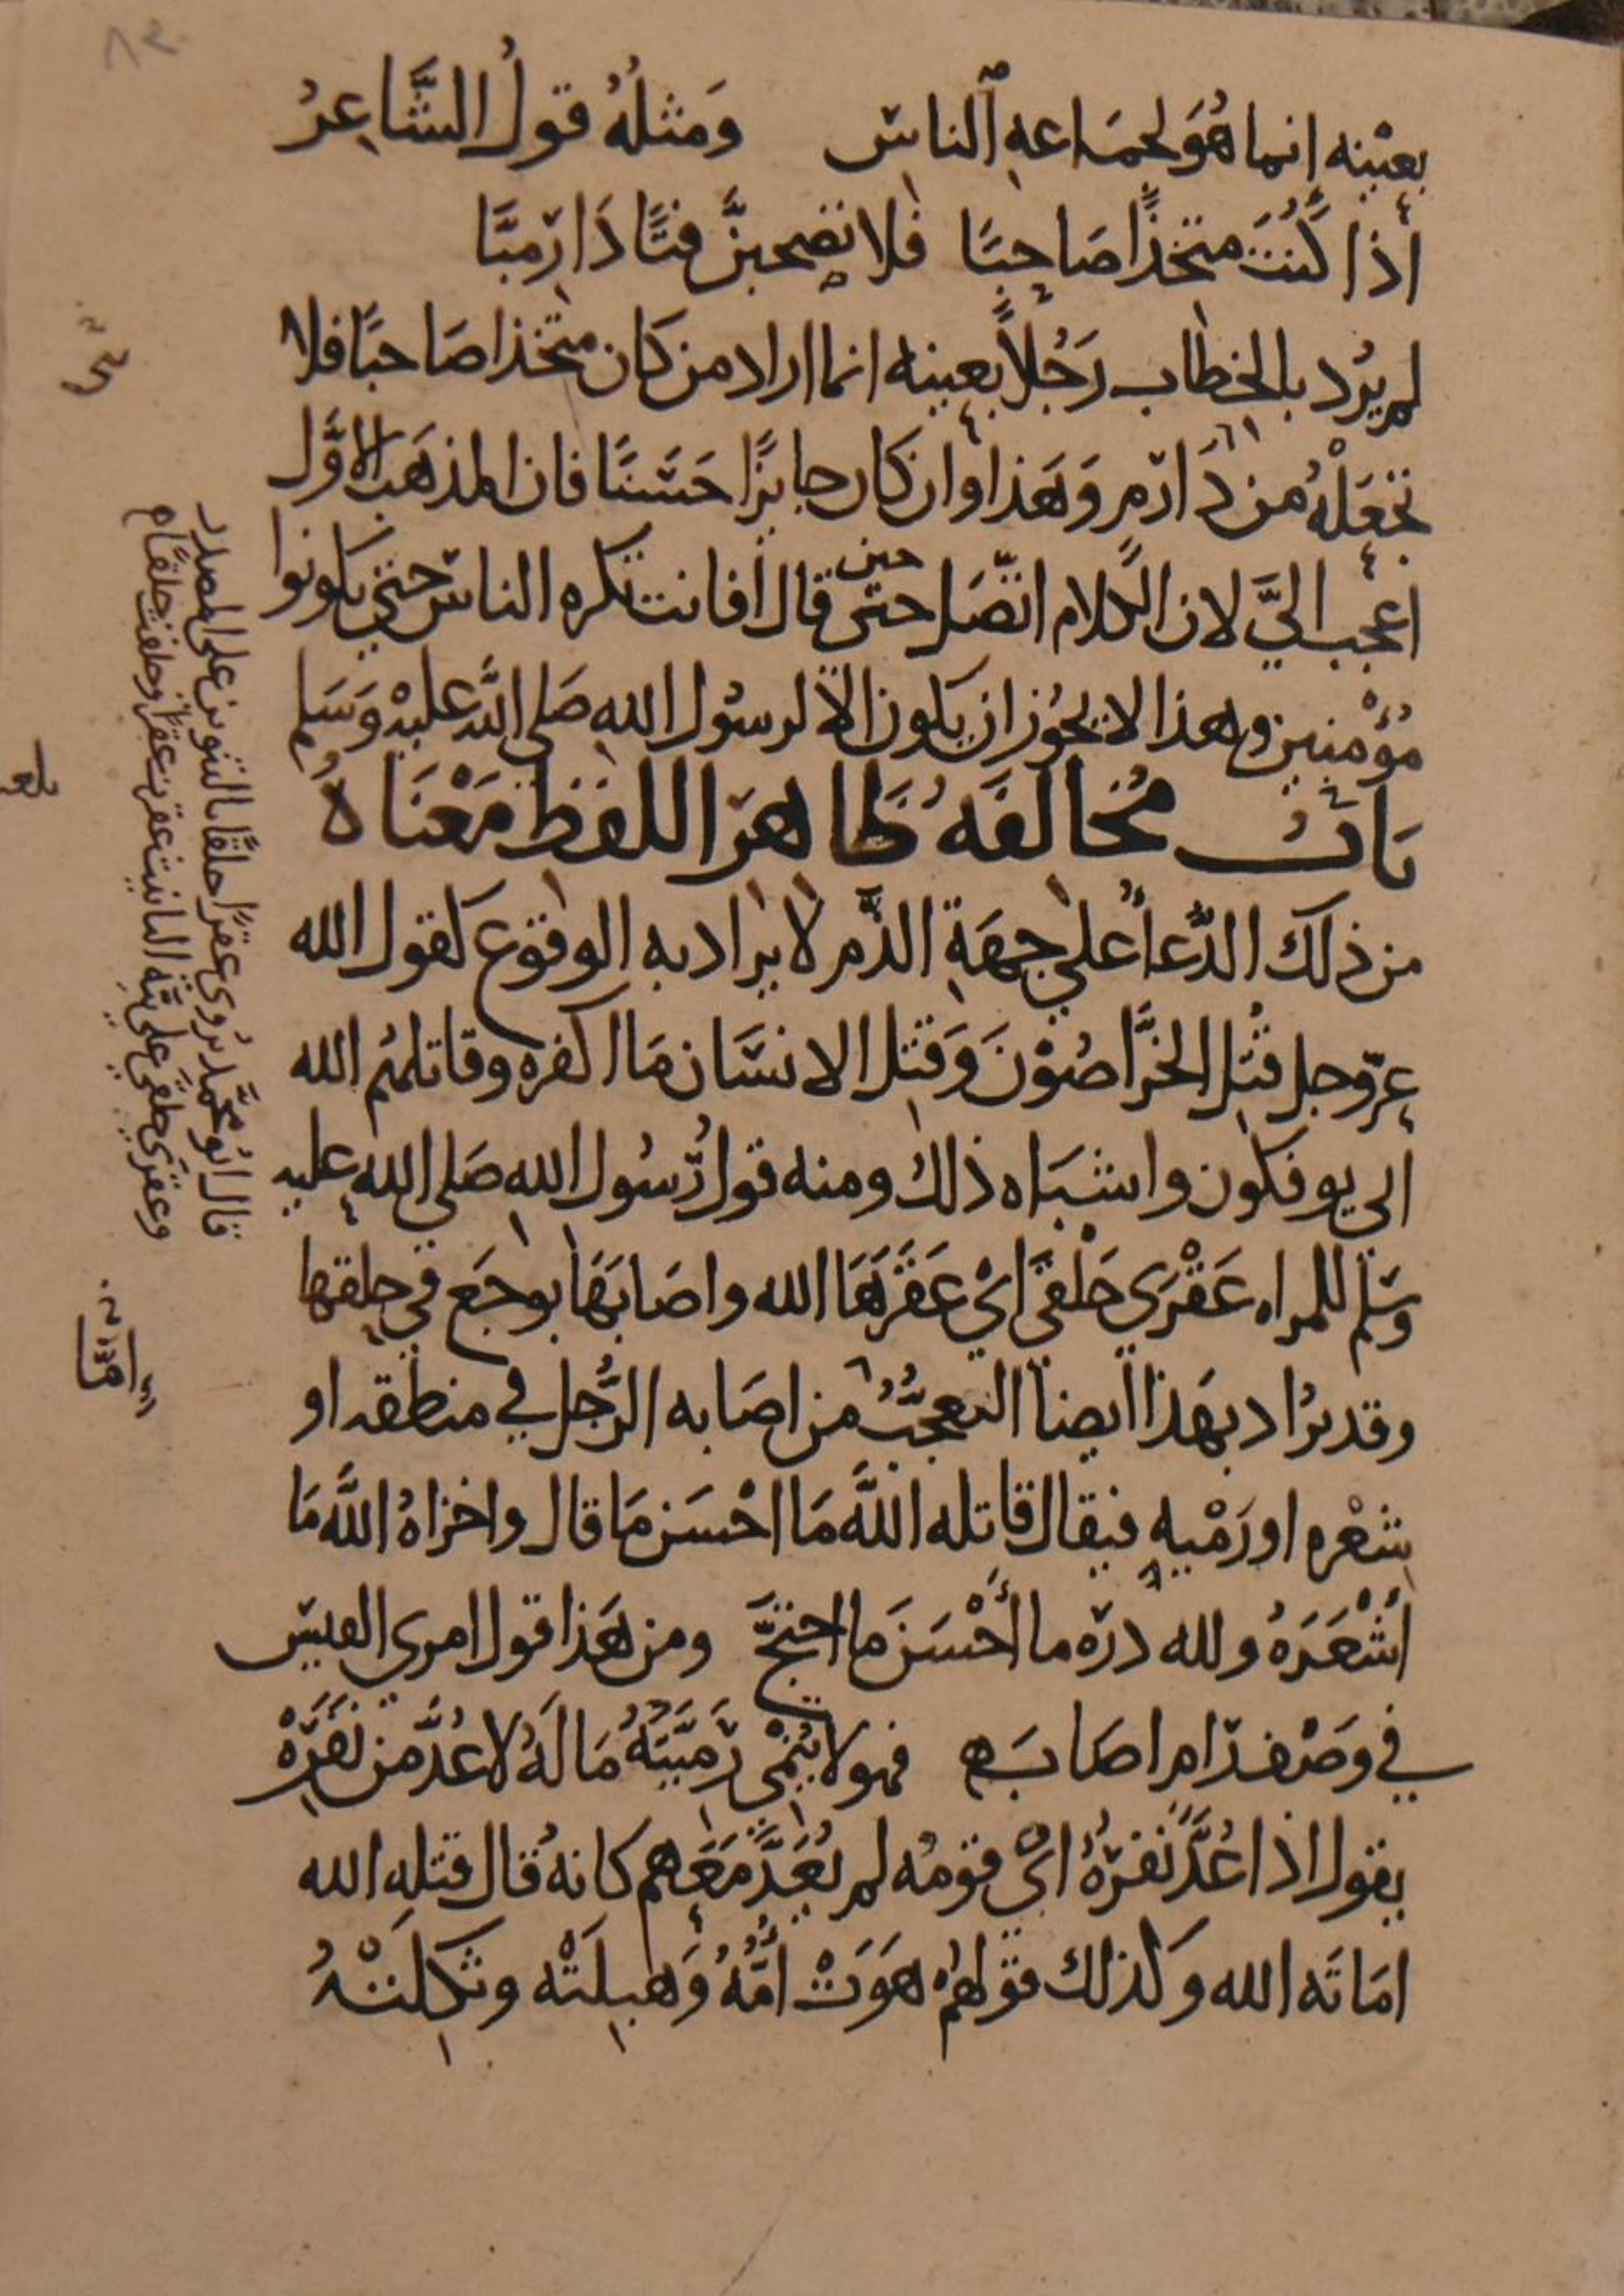 ٨٢
بعَيْنِه إنما هُوَ لجمَاعهِ الناس وَمثلهُ قولُ الشَّاعِرُ
أذا كُنتَ متخذًا صَاحِبًا فلا تصحبنَّ فتًا دَارِميَّا
لم يرُد بالخطاب رَجُلاً بعينه انما اراد من كان متخذا صَاحبًا فلا
تجعَلْهُ من دَارِم وَهَذا وان كان جايزًا حَسَنًا فان المذهَب الاوَّل
اعجب اليَّ لان الكلام اتّصَل حتى قال أفانت تكره الناس حتى يكونوا
حين
مُؤْمنين وهذا لا يجُوز ان يكون الا لرسُول اللهِ صَلى اللَّه عليْهِ وَسَلم
بَابُ مُخالفَهُ ظَاهرَ اللفظِ مَعْنَاهُ
من ذلك الدّعأُ على جهَةِ الذّم لا يراد به الوقوع كقول الله
عزّ وجل قُتِل الخرَّاصُوْنَ وَقُتِل الانسَان مَا اكفره وقاتلهُم الله
انى يوفكون واشبَاه ذلك ومنه قولُ رّسُول اللهِ صَلى الله عليه
وسَلّم للمراه عَقْرَى حَلْقَى أيْ عَقَرَهَا الله واصَابَهَا بوجَع في حلقها
وقد يرُاد بهَذا ايضا التعجّبُ من اصَابه الرَّجُل في منطقه او
شعْرهِ او رَمْيهِ فيقال قاتله اللَّه مَا احْسَن مَا قال واخزاهُ اللَّه مَا
أَشْعَرَهُ ولله درّه ما أَحْسَنَ ما احتجَّ ومن هَذا قول امرى القيس
في وَصْف رّام اصَابَ فهو لا تَنْمِى رَمِيَّتُهُ مَا لَهُ لا عُدَّ من نَفَرِهْ
يقول اذا عُدَّ نَفَرُهُ أيْ قومُه لم يُعَدَّ مَعَهم كانهُ قال قتله الله
امَاتَه الله وكذلك قولهُمْ هَوَتْ أُمُّهُ وَهَبِلَتْه وثكِلَتْهُ
قال ابُو محمَّد يرُوى عقرًا حلقًا بالتنوين على المصدر
وعقرَى حلقَى على بنيّه التانيث عقرت عقرًا وحلقت حلقًا م